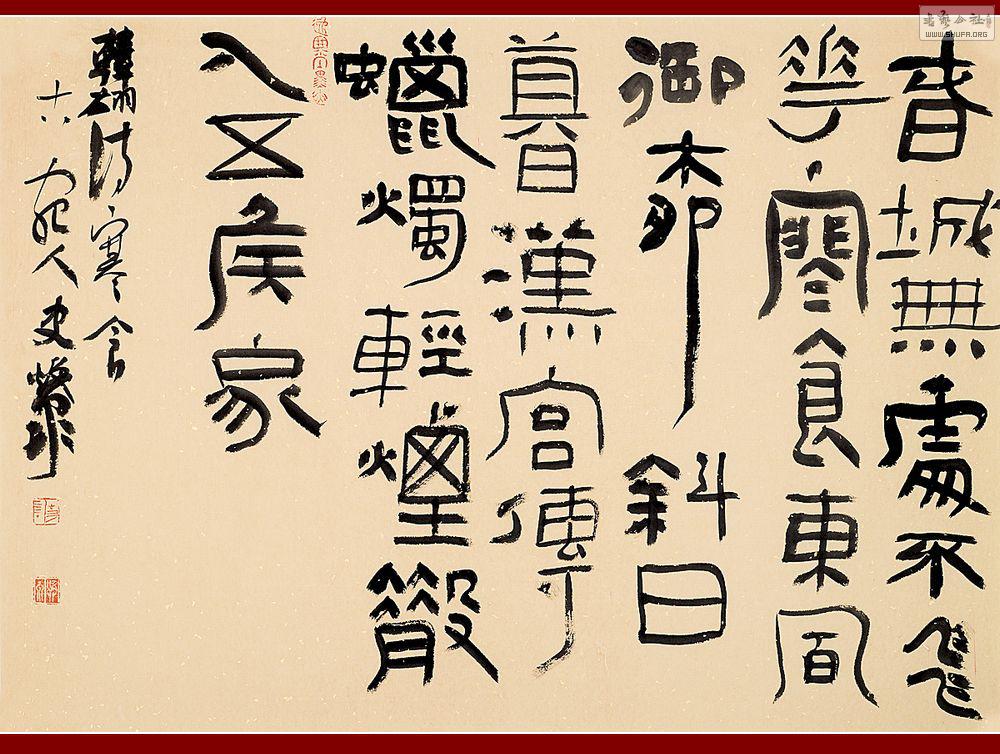 春城無處不飛
花寒食東風
御柳斜日
暮漢宮傳
蠟燭輕煙散
入五侯家
韓翃詩寒食
人史
書藝公社
WWW.SHUFA.ORG